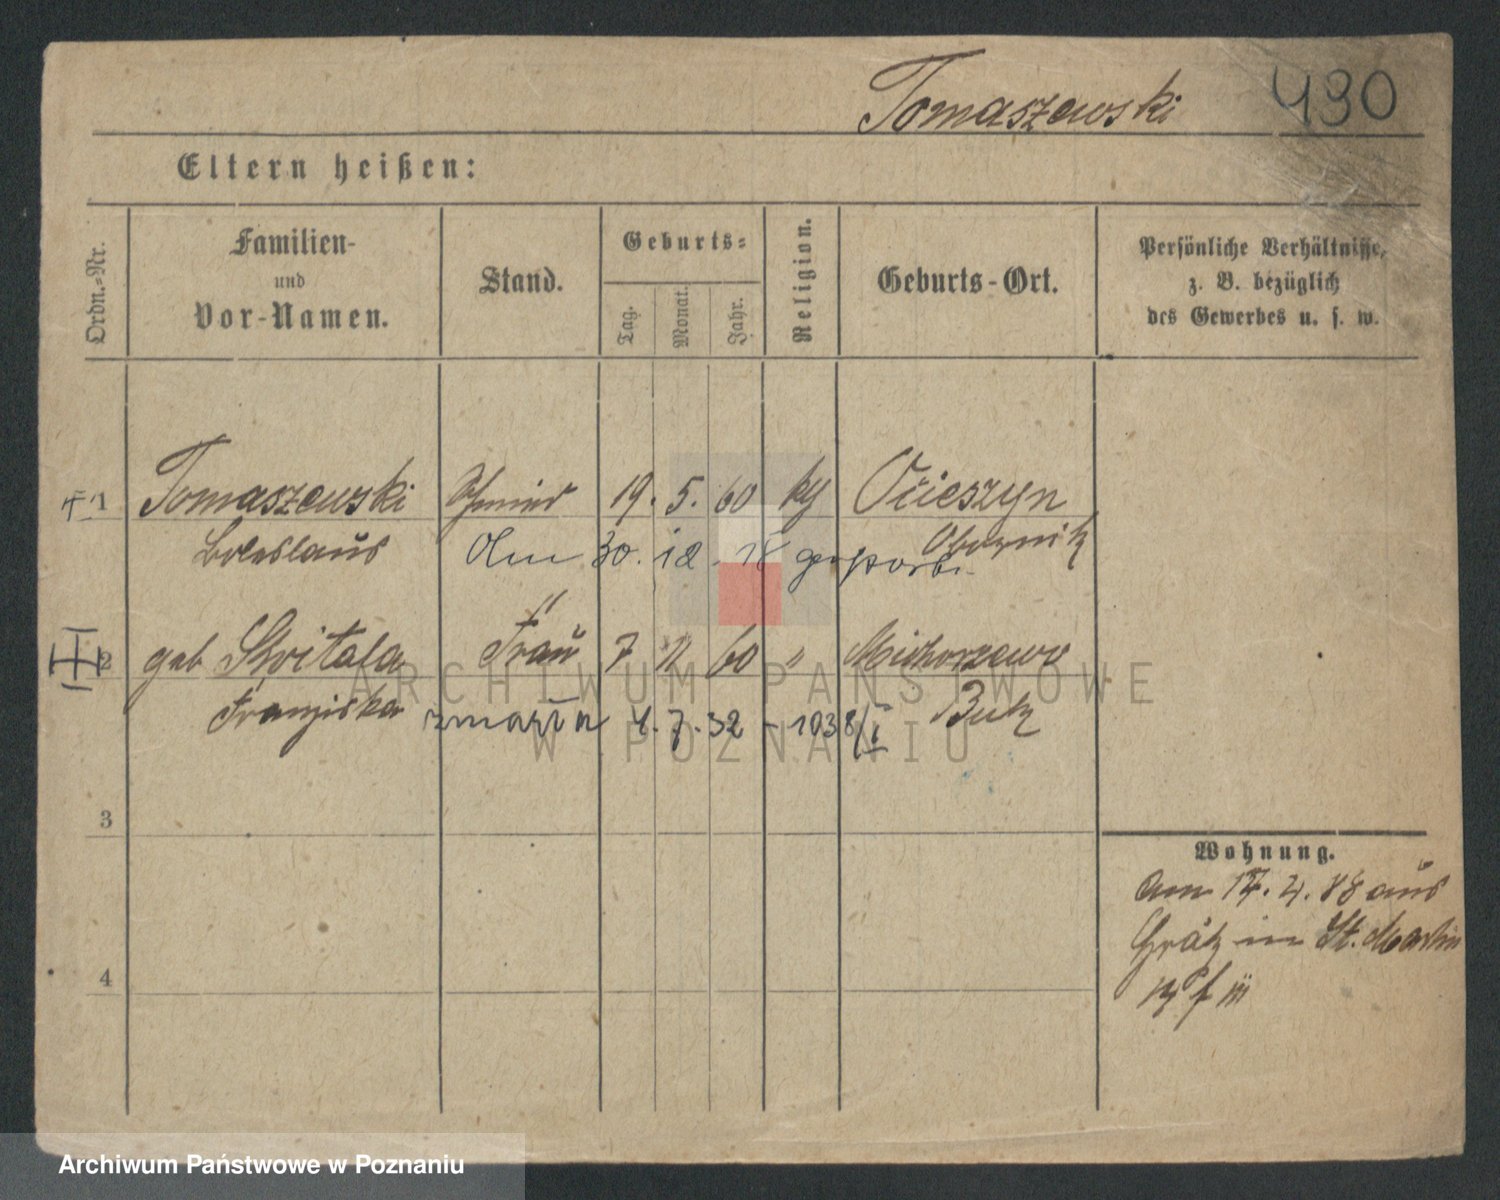 Tomaszewski 490
Eltern heißen:
Ordn.-Nr.
Familien-
und
Vor-Namen.
Stand.
Geburts-
Tag.
Monat.
Jahr.
Religion.
Geburts-Ort.
Persönliche Verhältnisse,
z. B. bezüglich
des Gewerbes u. s. w.
1 Tomaszewski Schmied 19. 5. 60 kth Ocieszyn
Boleslaus Obornik
30. 12. 18 gestorb.
2 geb Skvitala Frau 7 11 60 " Michorzewo
Franziska zmarła 4. 7. 32 - 1038/I Buk
3
4
Wohnung.
am 17. 4. 88 aus
Grätz in St. Martin
ARCHIWUM PAŃSTWOWE
W POZNANIU
Archiwum Państwowe w Poznaniu